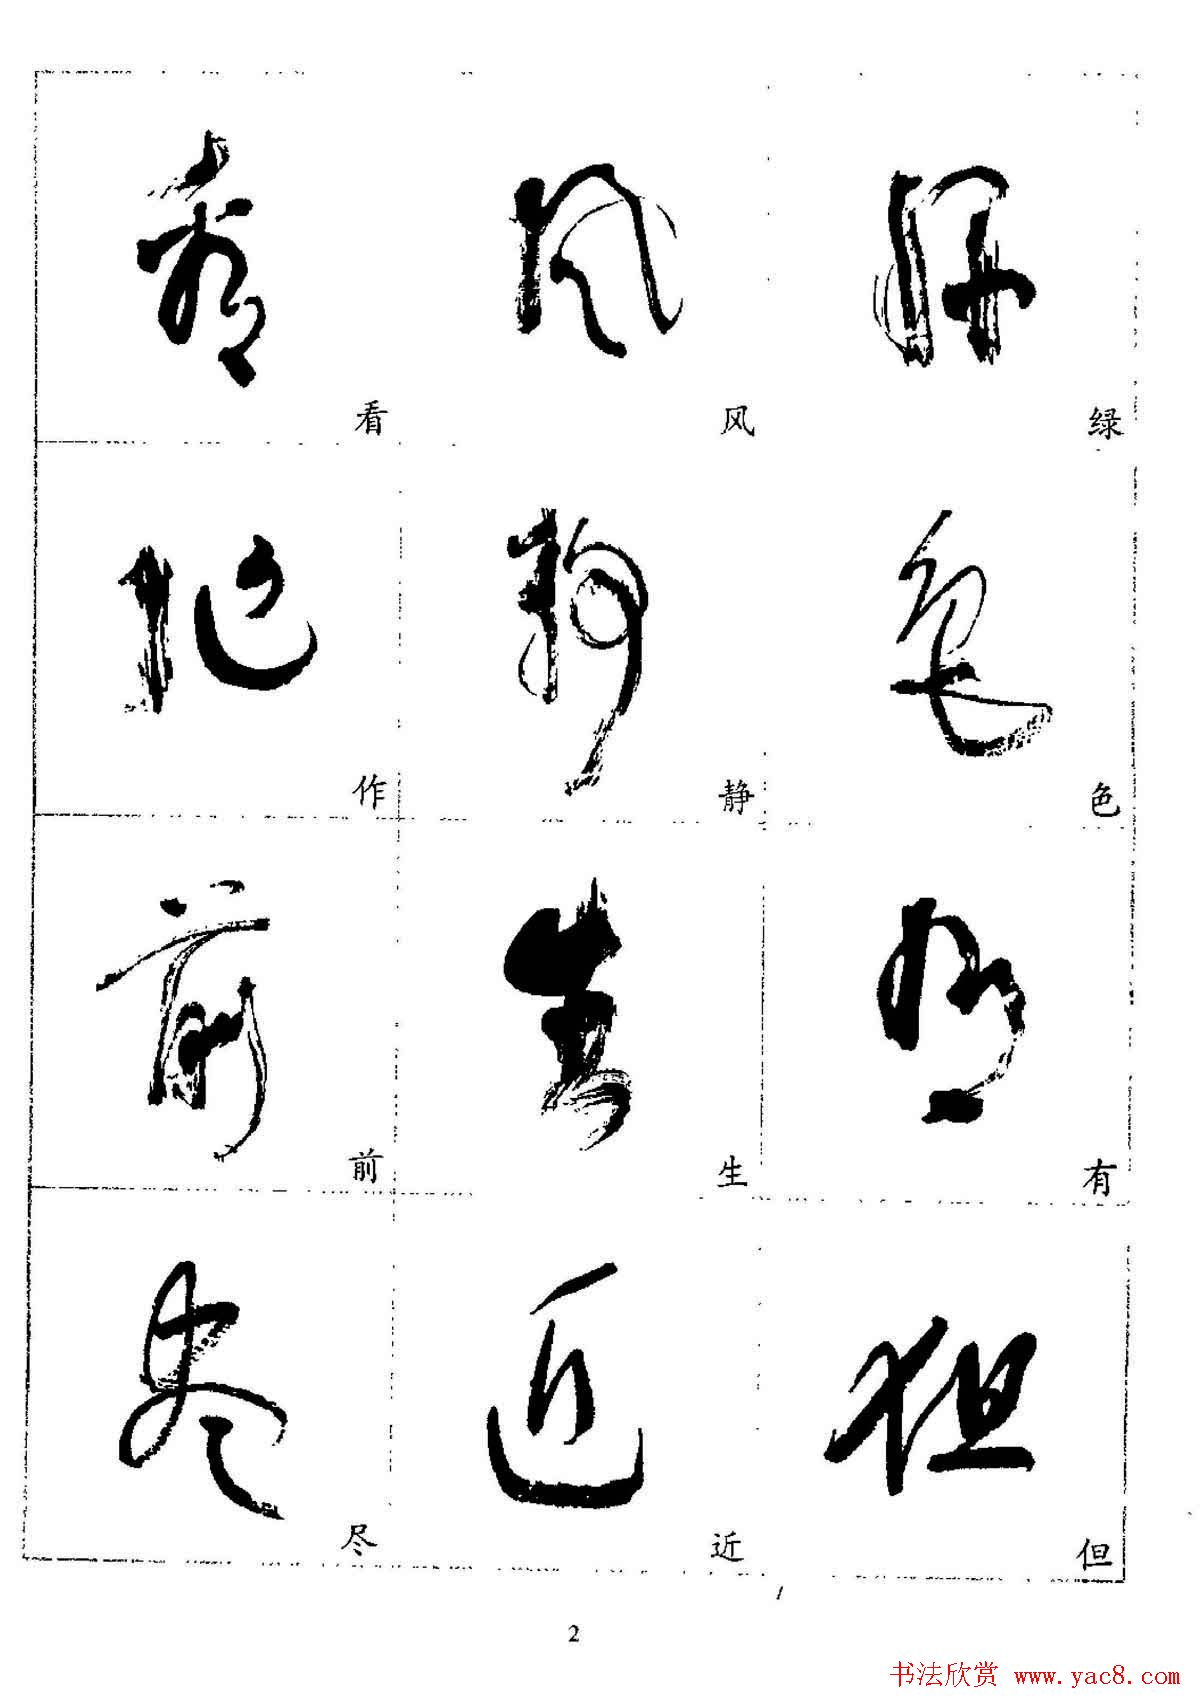 看 风 绿
作 静 色
前 生 有
尽 近 但
2
书法欣赏 www.yac8.com